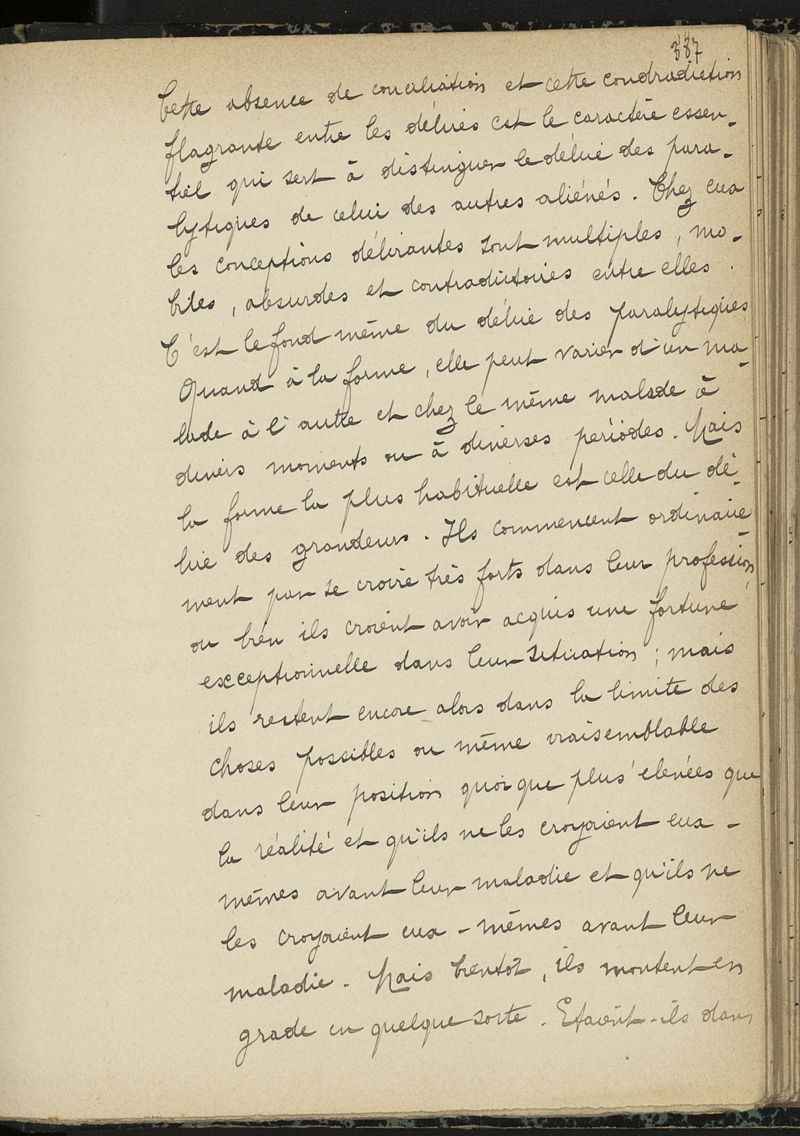 337
Cette absence de conciliation et cette condradiction
flagrante entre les délires est le caractère essen-
tiel qui sert à distinguer le délire des para-
lytiques de celui des autres aliénés. Chez eux
les conceptions délirantes sont multiples, mo-
biles, absurdes et contradictoires entre elles.
C'est le fond même du délire des paralytiques
Quand à la forme, elle peut varier d'un ma-
lade à l'autre et chez le même malade à
divers moments ou à diverses périodes. Mais
la forme la plus habituelle est celle du dé-
lire des grandeurs. Ils commencent ordinaire-
ment par se croire très forts dans leur profession,
ou bien ils croient avoir acquis une fortune
exceptionnelle dans leur situation ; mais
ils restent encore alors dans la limite des
choses possibles ou même vraisemblable
dans leur position quoi que plus élevées que
la réalité et qu'ils ne les croyaient eux-
mêmes avant leur maladie et qu'ils ne
les croyaient eux-mêmes avant leur
maladie. Mais bientôt, ils montent en
grade en quelque sorte. Etaient-ils dans